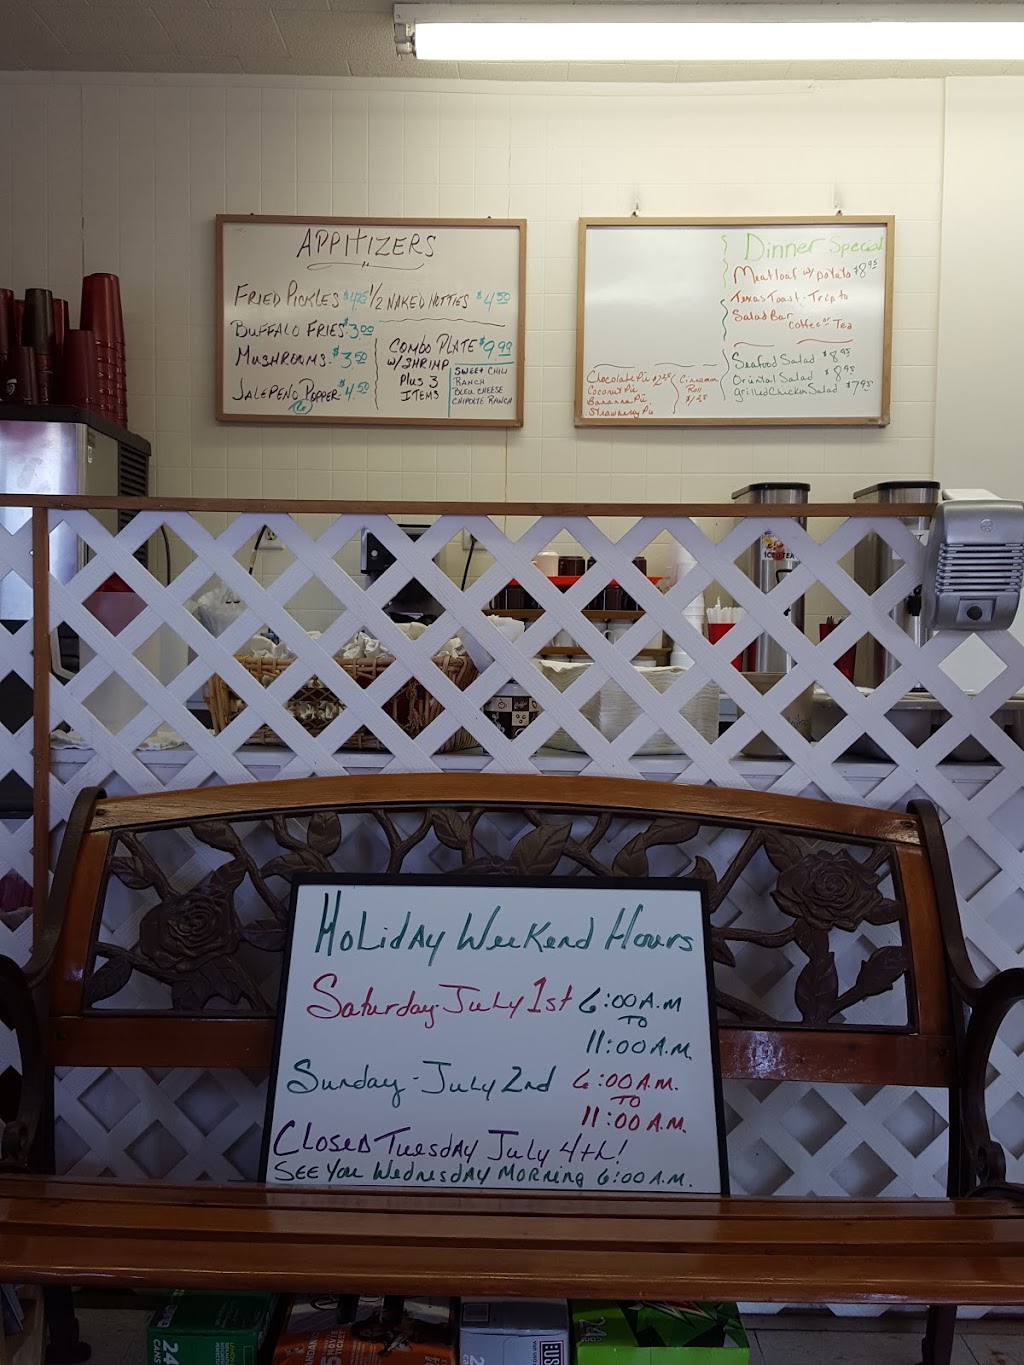 APPITIZERS
FRIED PICKLES $4.25 1/2 NAKED HOTTIES $4.50
BUFFALO FRIES $3.00
MUSHROOMS $3.50
JALEPENO POPPER $4.50
(6)
COMBO PLATE $9.99
W/SHRIMP
PLUS 3
ITEMS
SWEET CHILI
RANCH
BLEU CHEESE
CHIPOLTE RANCH
Dinner Special
Meatloaf w/ potato $8.95
Texas Toast - Trip to
Salad Bar
Coffee or Tea
Seafood Salad $8.95
Oriental Salad $8.95
Grilled Chicken Salad $7.95
Chocolate Pie
Coconut Pie
Banana Pie
Strawberry Pie
Cinnamon
Roll
ICED TEA
Holiday Weekend Hours
Saturday-July 1st 6:00 A.M
TO
11:00 A.M.
Sunday-July 2nd 6:00 A.M.
TO
11:00 A.M.
Closed Tuesday July 4th!
SEE You Wednesday Morning 6:00 A.M.
24
CANS
24
24
CANS